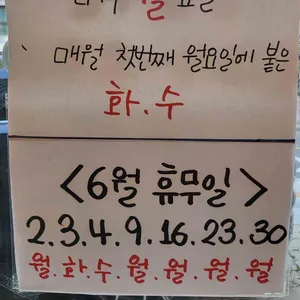 월요일
매월 첫번째 월요일에 붙은
화.수
<6월 휴무일>
2.3.4.9.16.23.30
월.화.수.월.월.월.월